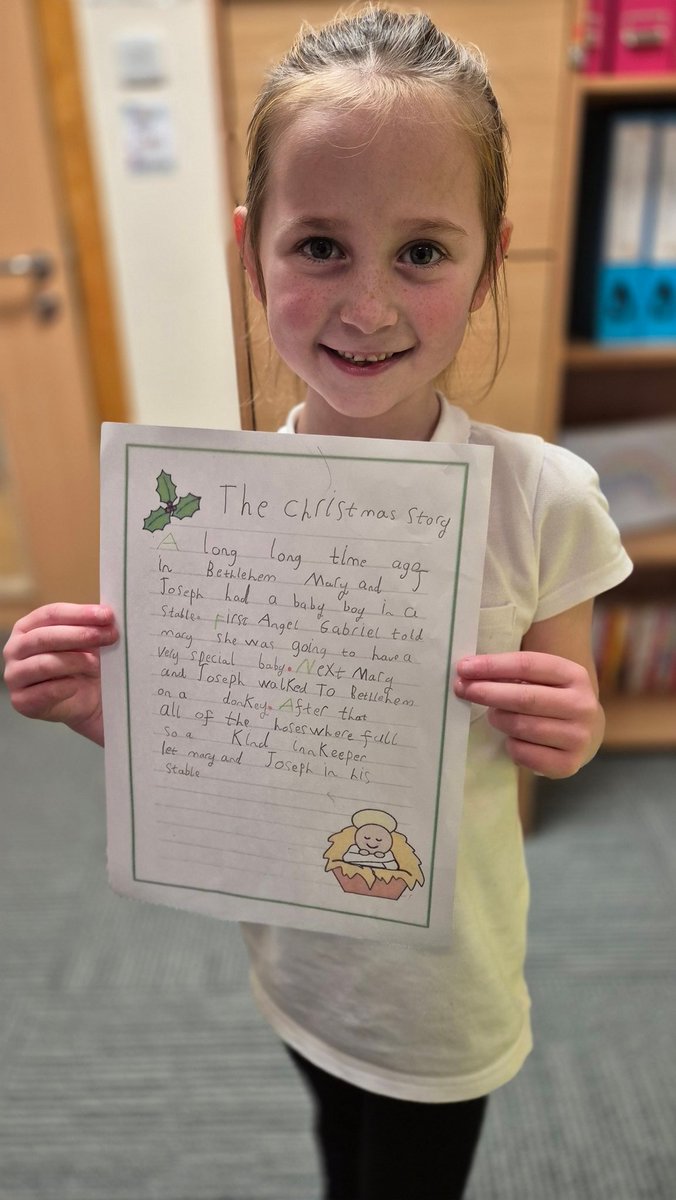 The christmas story
A long long time ago
in Bethlehem Mary and
Joseph had a baby boy in a
stable. First Angel Gabriel told
mary she was going to have a
very special baby. Next Mary
and Joseph walked To Betlehem
on a donkey. After that
all of the hoses where full
so a Kind innKeeper
let mary and Joseph in his
stable